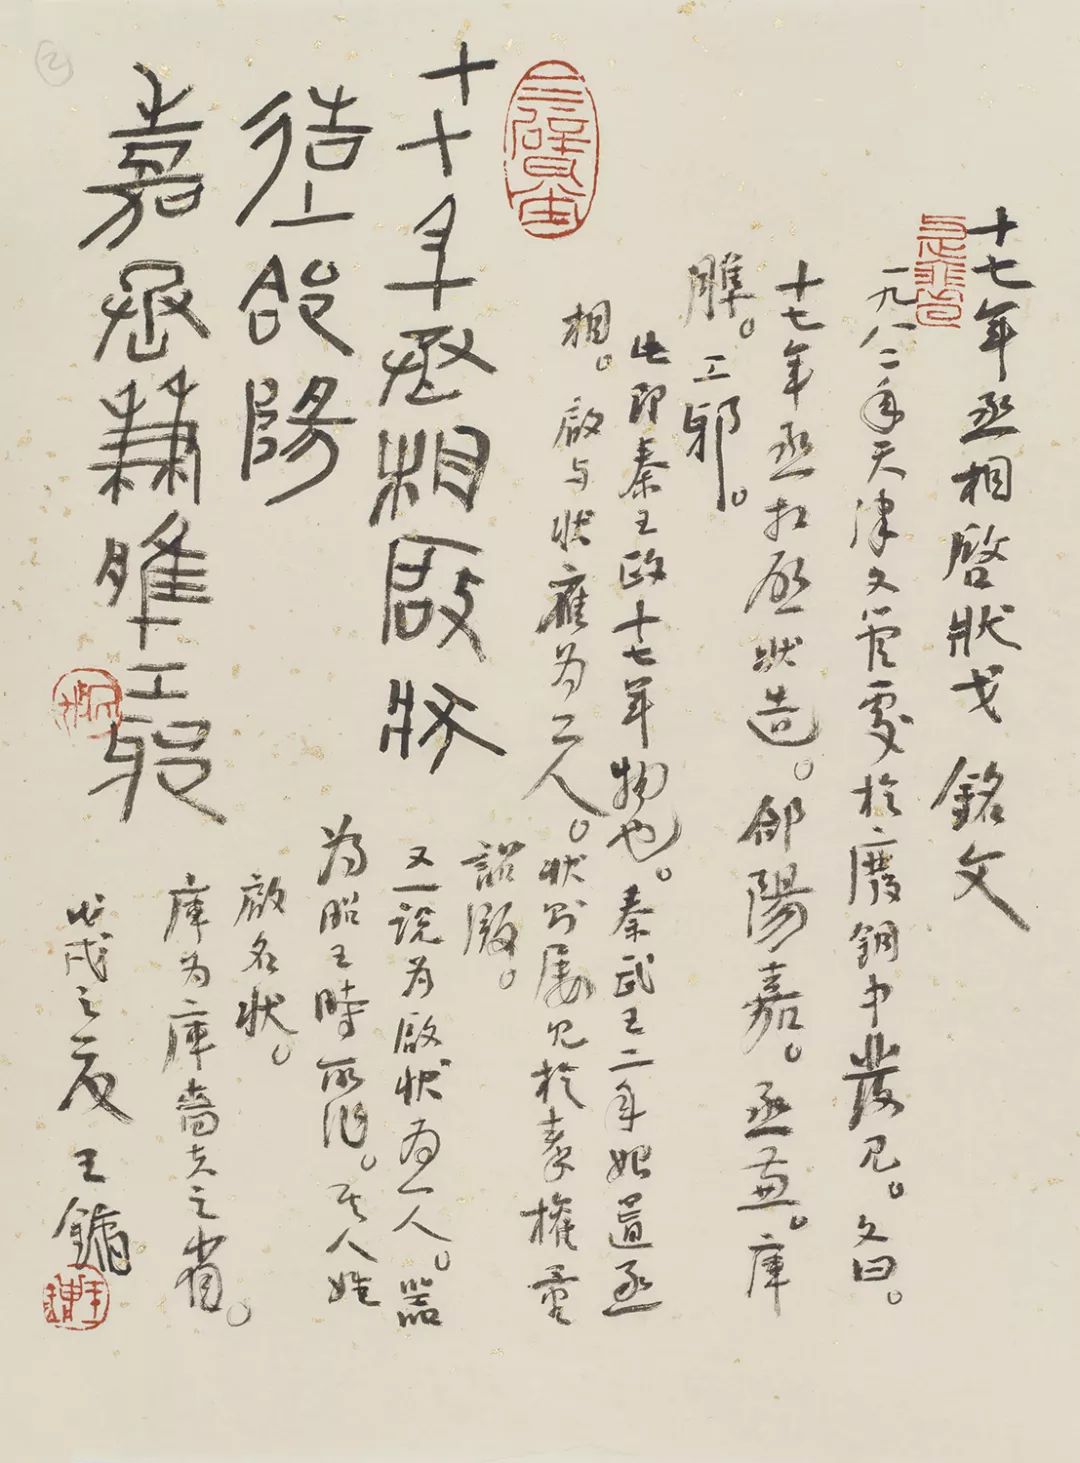 十七年丞相啓狀戈 銘文
一九八二年天津文管處於廢銅中發見。文曰。
十七年丞相啟狀造。郃陽嘉。丞兼。庫
脽。工邪。
此即秦王政十七年物也。秦武王二年始置丞
相。啟与狀應为二人。狀则屡见於秦權量
詔版。
又一説为啟狀为一人。器
为昭王時所作。其人姓
啟名狀。
庫为庫嗇夫之省。
十七年丞相啟狀
造郃陽
嘉丞兼庫脽工邪
戊戌之夏 王鏞